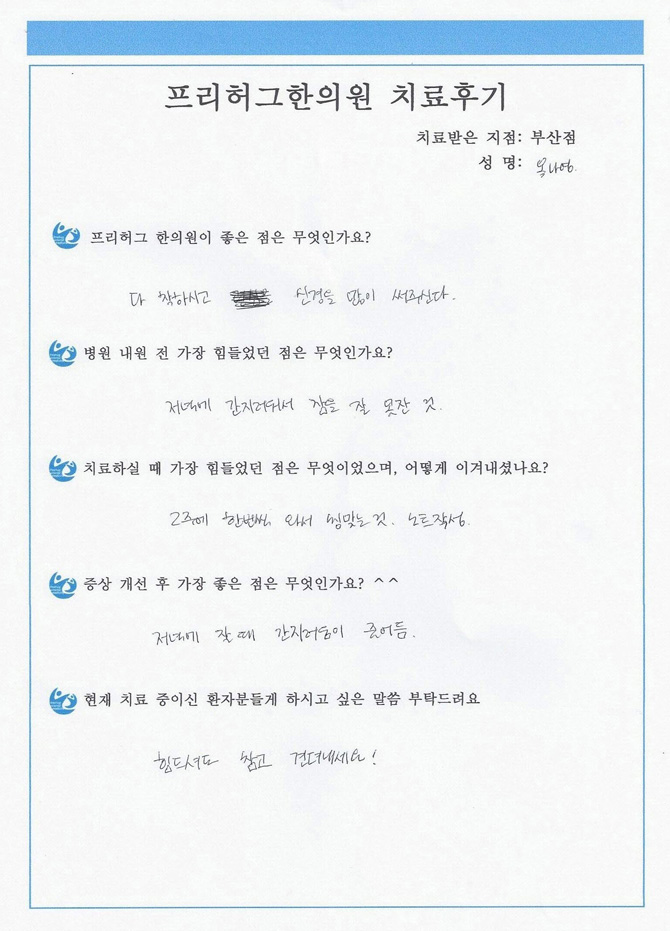 프리허그한의원 치료후기
치료받은 지점: 부산점
성 명: 옹나영.
프리허그 한의원이 좋은 점은 무엇인가요?
다 착하시고 신경을 많이 써주신다.
병원 내원 전 가장 힘들었던 점은 무엇인가요?
저녁에 간지러워서 잠을 잘 못잔 것.
치료하실 때 가장 힘들었던 점은 무엇이었으며, 어떻게 이겨내셨나요?
2주에 한번씩 와서 침맞는것. 노트작성.
증상 개선 후 가장 좋은 점은 무엇인가요? ^^
저녁에 잘 때 간지러움이 줄어듬.
현재 치료 중이신 환자분들게 하시고 싶은 말씀 부탁드려요
힘드셔도 참고 견뎌내세요!